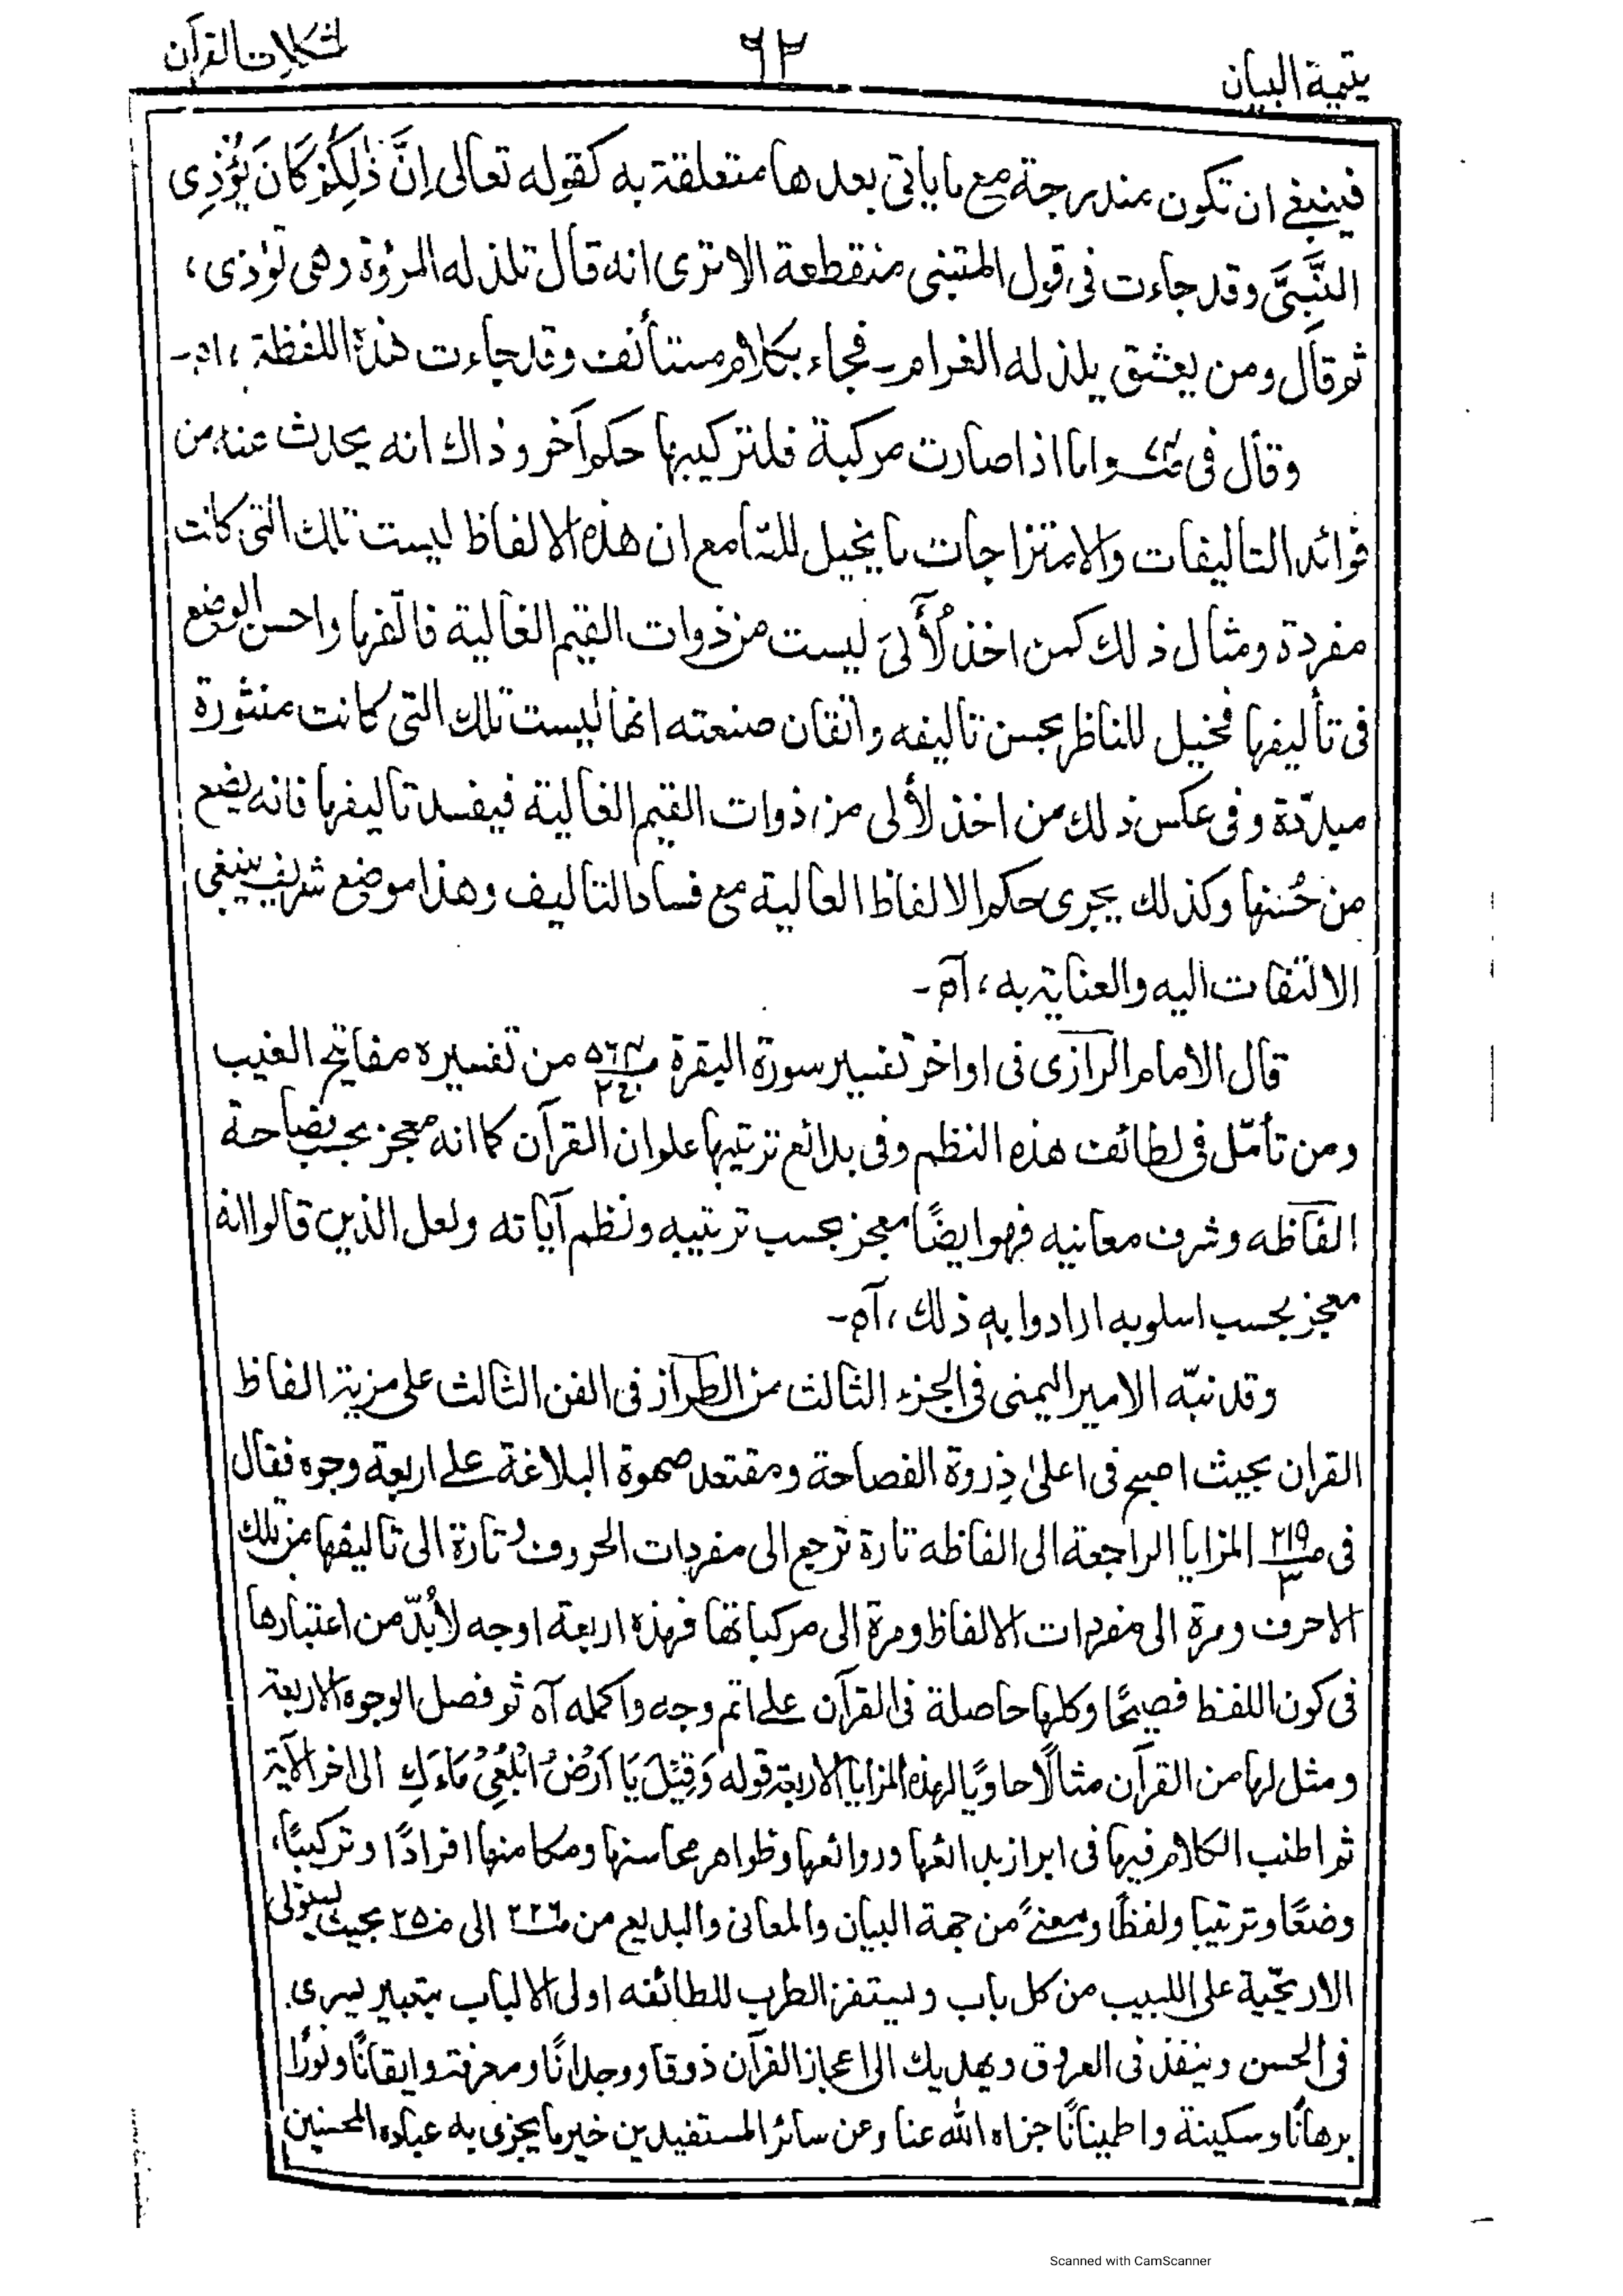 يتيمة البيان
٦٢
لمشكلات القرآن
فينبغي ان تكون مندرجة مع ما ياتي بعدها متعلقة به كقوله تعالى اِنَّ ذٰلِكُمْ كَانَ يُؤْذِى
النَّبِىَّ وقد جاءت فى قول المتنبى منقطعة الا ترى انه قال تلذ له المرؤة وهى تؤذى،
ثم قال ومن يعشق يلذ له الغرام۔ فجاء بكلام مستأنف وقد جاءت هذه اللفظة، اه۔
وقال فى واما اذا صارت مركبة فلتركيبها حكم آخر وذاك انه يحدث عنه من
فوائد التاليفات والامتزاجات ما يخيل للسامع ان هذه الالفاظ ليست تلك التى كانت
مفردة ومثال ذلك كمن اخذ لُأٓلِىَ ليست من ذوات القيم الغالية فالّفها واحسن الوضع
فى تأليفها فخيل للناظر بحسن تاليفه واتقان صنعته انها ليست تلك التى كانت منثورة
مبدّدة وفى عكس ذلك من اخذ لأٓلى من ذوات القيم الغالية فيفسد تاليفها فانه يضع
من حُسنها وكذلك يجرى حكم الالفاظ العالية مع فساد التاليف وهذا موضع شريف ينبغى
الالتفات اليه والعناية به، آه۔
قال الامام الرازى فى اواخر تفسير سورة البقرة من تفسيره مفاتيح الغيب
ومن تأمّل فى لطائف هذه النظم وفى بدائع ترتيبها علم ان القرآن كما انه معجز بحسب فصاحة
الفاظه وشرف معانيه فهو ايضًا معجز بحسب ترتيبه ونظم آياته ولعل الذين قالوا انه
معجز بحسب اسلوبه ارادوا به ذلك، آه۔
وقد نبّه الامير اليمنى فى الجزء الثالث من الطراز فى الفن الثالث على مزية الفاظ
القران بحيث اصبح فى اعلىٰ ذِروة الفصاحة ومقتعد صهوة البلاغة على اربعة وجوه فقال
فى صـ ٢١٩/٣ المزايا الراجعة الى الفاظه تارة ترجع الى مفردات الحروف وتارة الى تاليفها من تلك
الاحرف ومرة الى مفردات الالفاظ ومرة الى مركباتها فهذه اربعة اوجه لابُدّ من اعتبارها
فى كون اللفظ فصيحًا وكلها حاصلة فى القرآن على اتم وجه واكمله آه ثم فصل الوجوه الاربعة
ومثل لها من القرآن مثالًا حاويًا لهذه المزايا الاربعة قوله وَقِيْلَ يَا اَرْضُ ابْلَعِىْ مَاءَكِ الى اخر الآية
ثم اطنب الكلام فيها فى ابراز بدائعها وروائعها وظواهر محاسنها ومكامنها افرادًا وتركيبًا،
وضعًا وترتيبا ولفظًا ومعنىً من جهة البيان والمعانى والبديع من صـ ٢٢٦ الى صـ ٢٥٠ بحيث يستولى
الاريحيّية على اللبيب من كل باب ويستفز الطرب للطائفه اولى الالباب بتعبير يسرى
فى الحسن وينفذ فى العروق ويهديك الى اعجاز القرآن ذوقا ووجدانًا ومعرفة وايقانًا ونورًا
برهانًا وسكينة واطمينانًا جزاه الله عنا وعن سائر المستفيدين خير ما يجزى به عباده المحسنين
Scanned with CamScanner